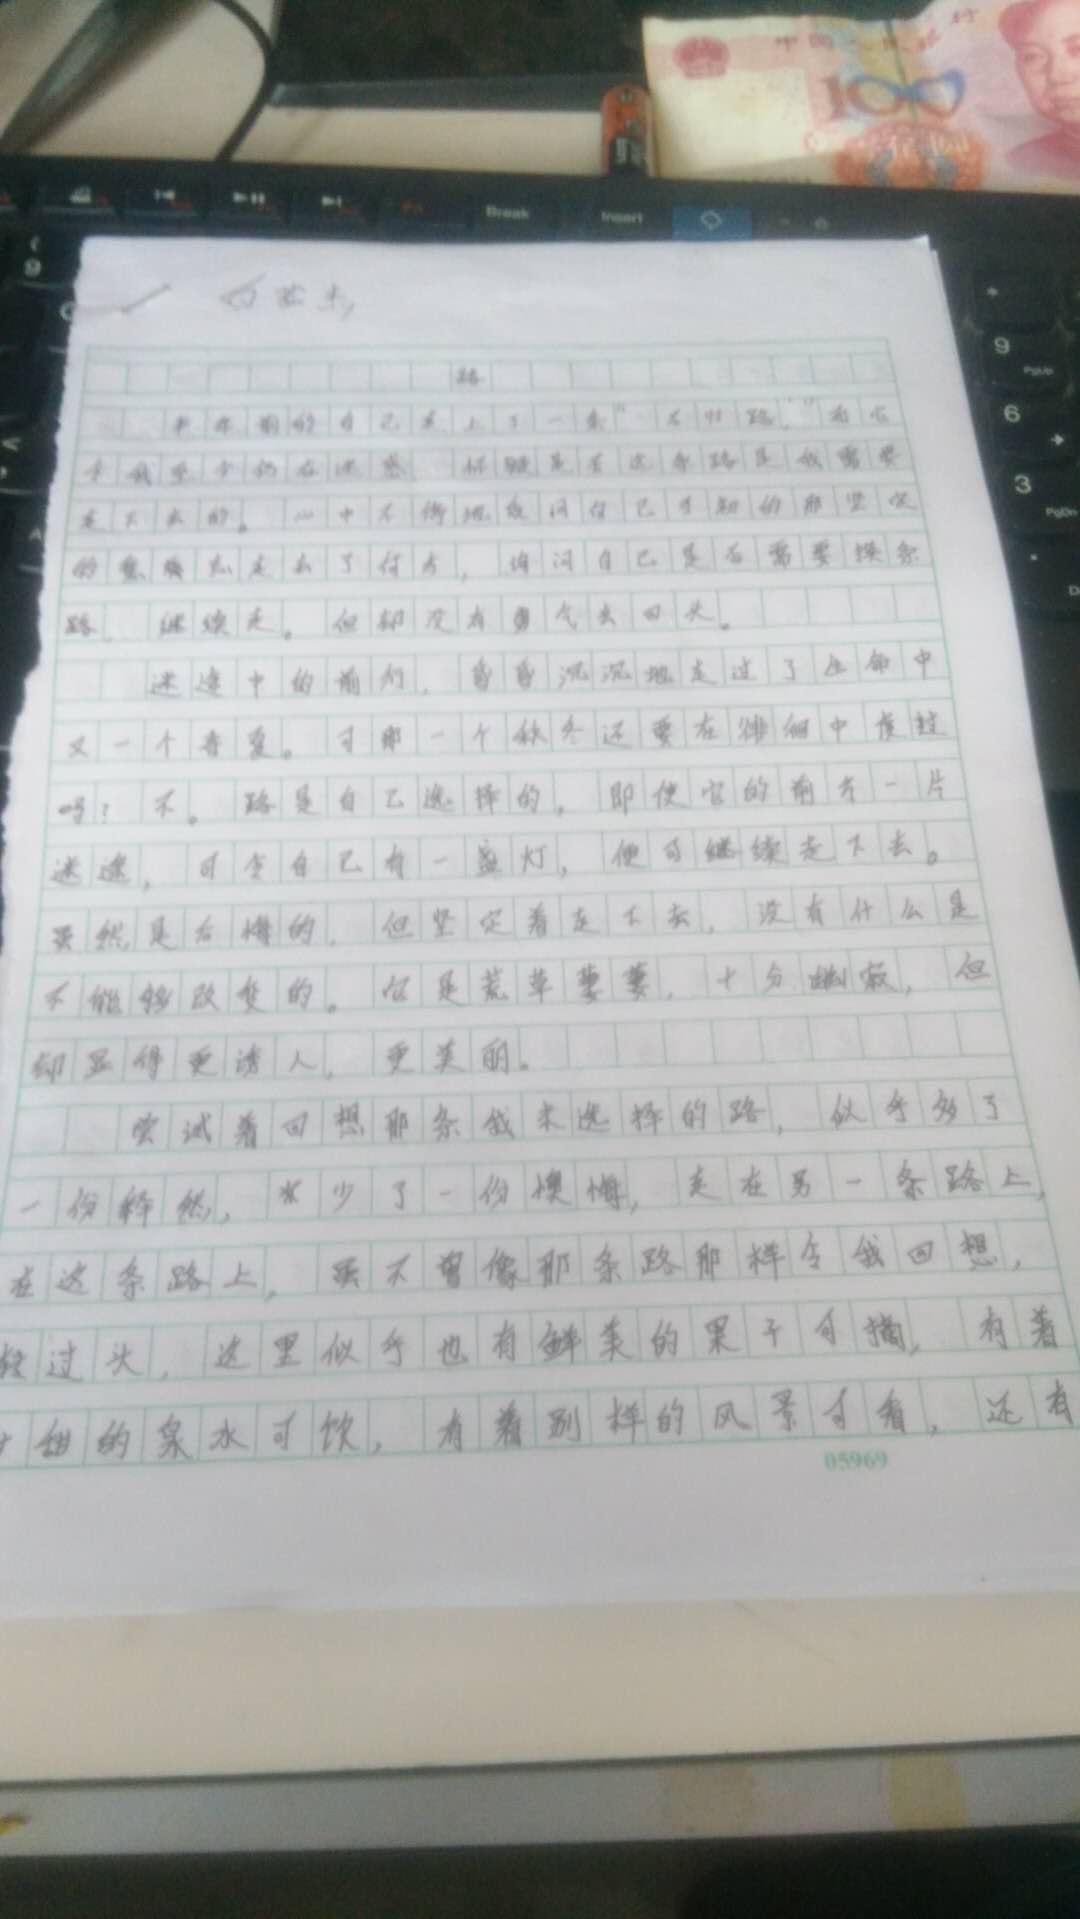 中国
100
Break
Insert
9
9
PgUp
6
3
PgDn
A
路
半年前的自己走上了一条“不归路”,
令我至今仍在迷惑,怀疑是否这条路是我需要
走下去的。心中不停地反问自己当初的那坚定
的意去了何方,询问自己是否需要换条
路,继续走。但却没有勇气去回头。
迷途中的前行,昏昏沉沉地走过了生命中
又一个春夏。可那一个秋冬还要在徘徊中度过
吗?不。路是自己选择的,即使它的前方一片
迷途,可令自己有一盏灯,便可继续走下去。
虽然是后悔的,但坚定着走下去,没有什么是
不能够改变的。它是荒草萋萋,十分幽寂,但
却显得更诱人,更美丽。
尝试着回想那条我未选择的路,似乎多了
一份释然,少了一份懊悔,走在另一条路上,
在这条路上,虽不曾像那条路那样令我回想,
过头,这里似乎也有鲜美的果子可摘,有着
甜的泉水可饮,有着别样的风景可看,还有
05969